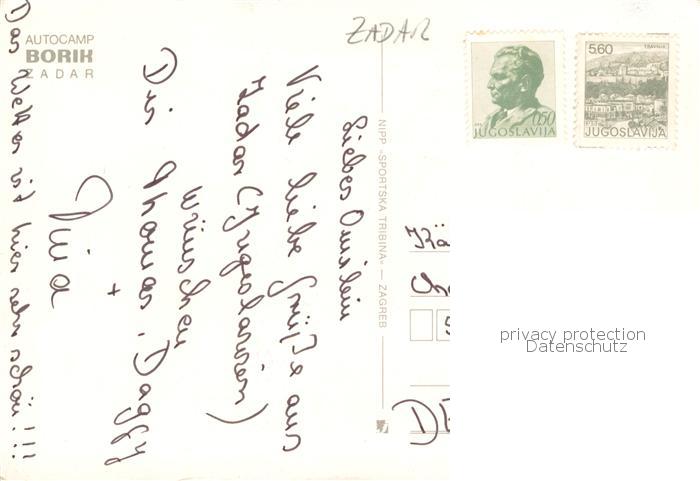 AUTOCAMP
BORIK
ZADAR
ZADAR
Liebes Omilein
Viele liebe Grüße aus
Zadar (Jugoslawien)
wünschen
Dir Thomas, Daggy
+
Das Wetter ist hier sehr schön!!!
NIPP »SPORTSKA TRIBINA« — ZAGREB
0,50
JUGOSLAVIJA
5,60
TRAVNIK
JUGOSLAVIJA
privacy protection
Datenschutz